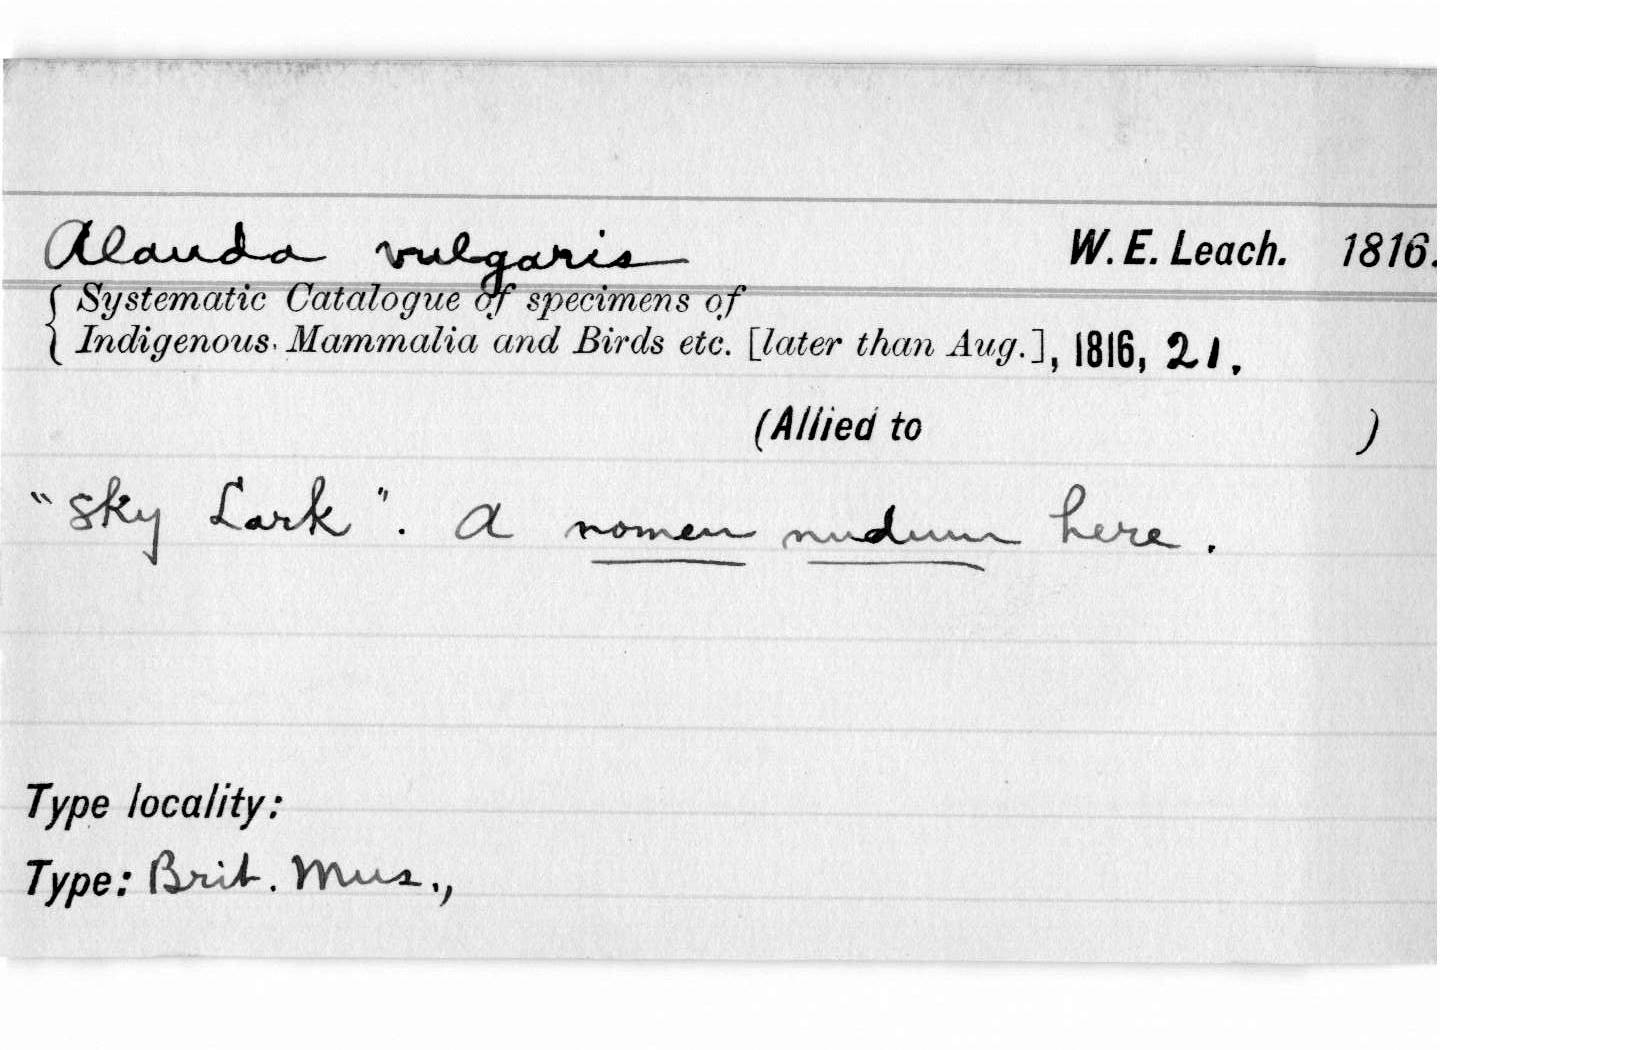 Alauda vulgaris W. E. Leach. 1816.
{ Systematic Catalogue of specimens of
Indigenous Mammalia and Birds etc. [later than Aug.], 1816, 21.
(Allied to )
"Sky Lark". A nomen nudum here.
Type locality:
Type: Brit. Mus.,